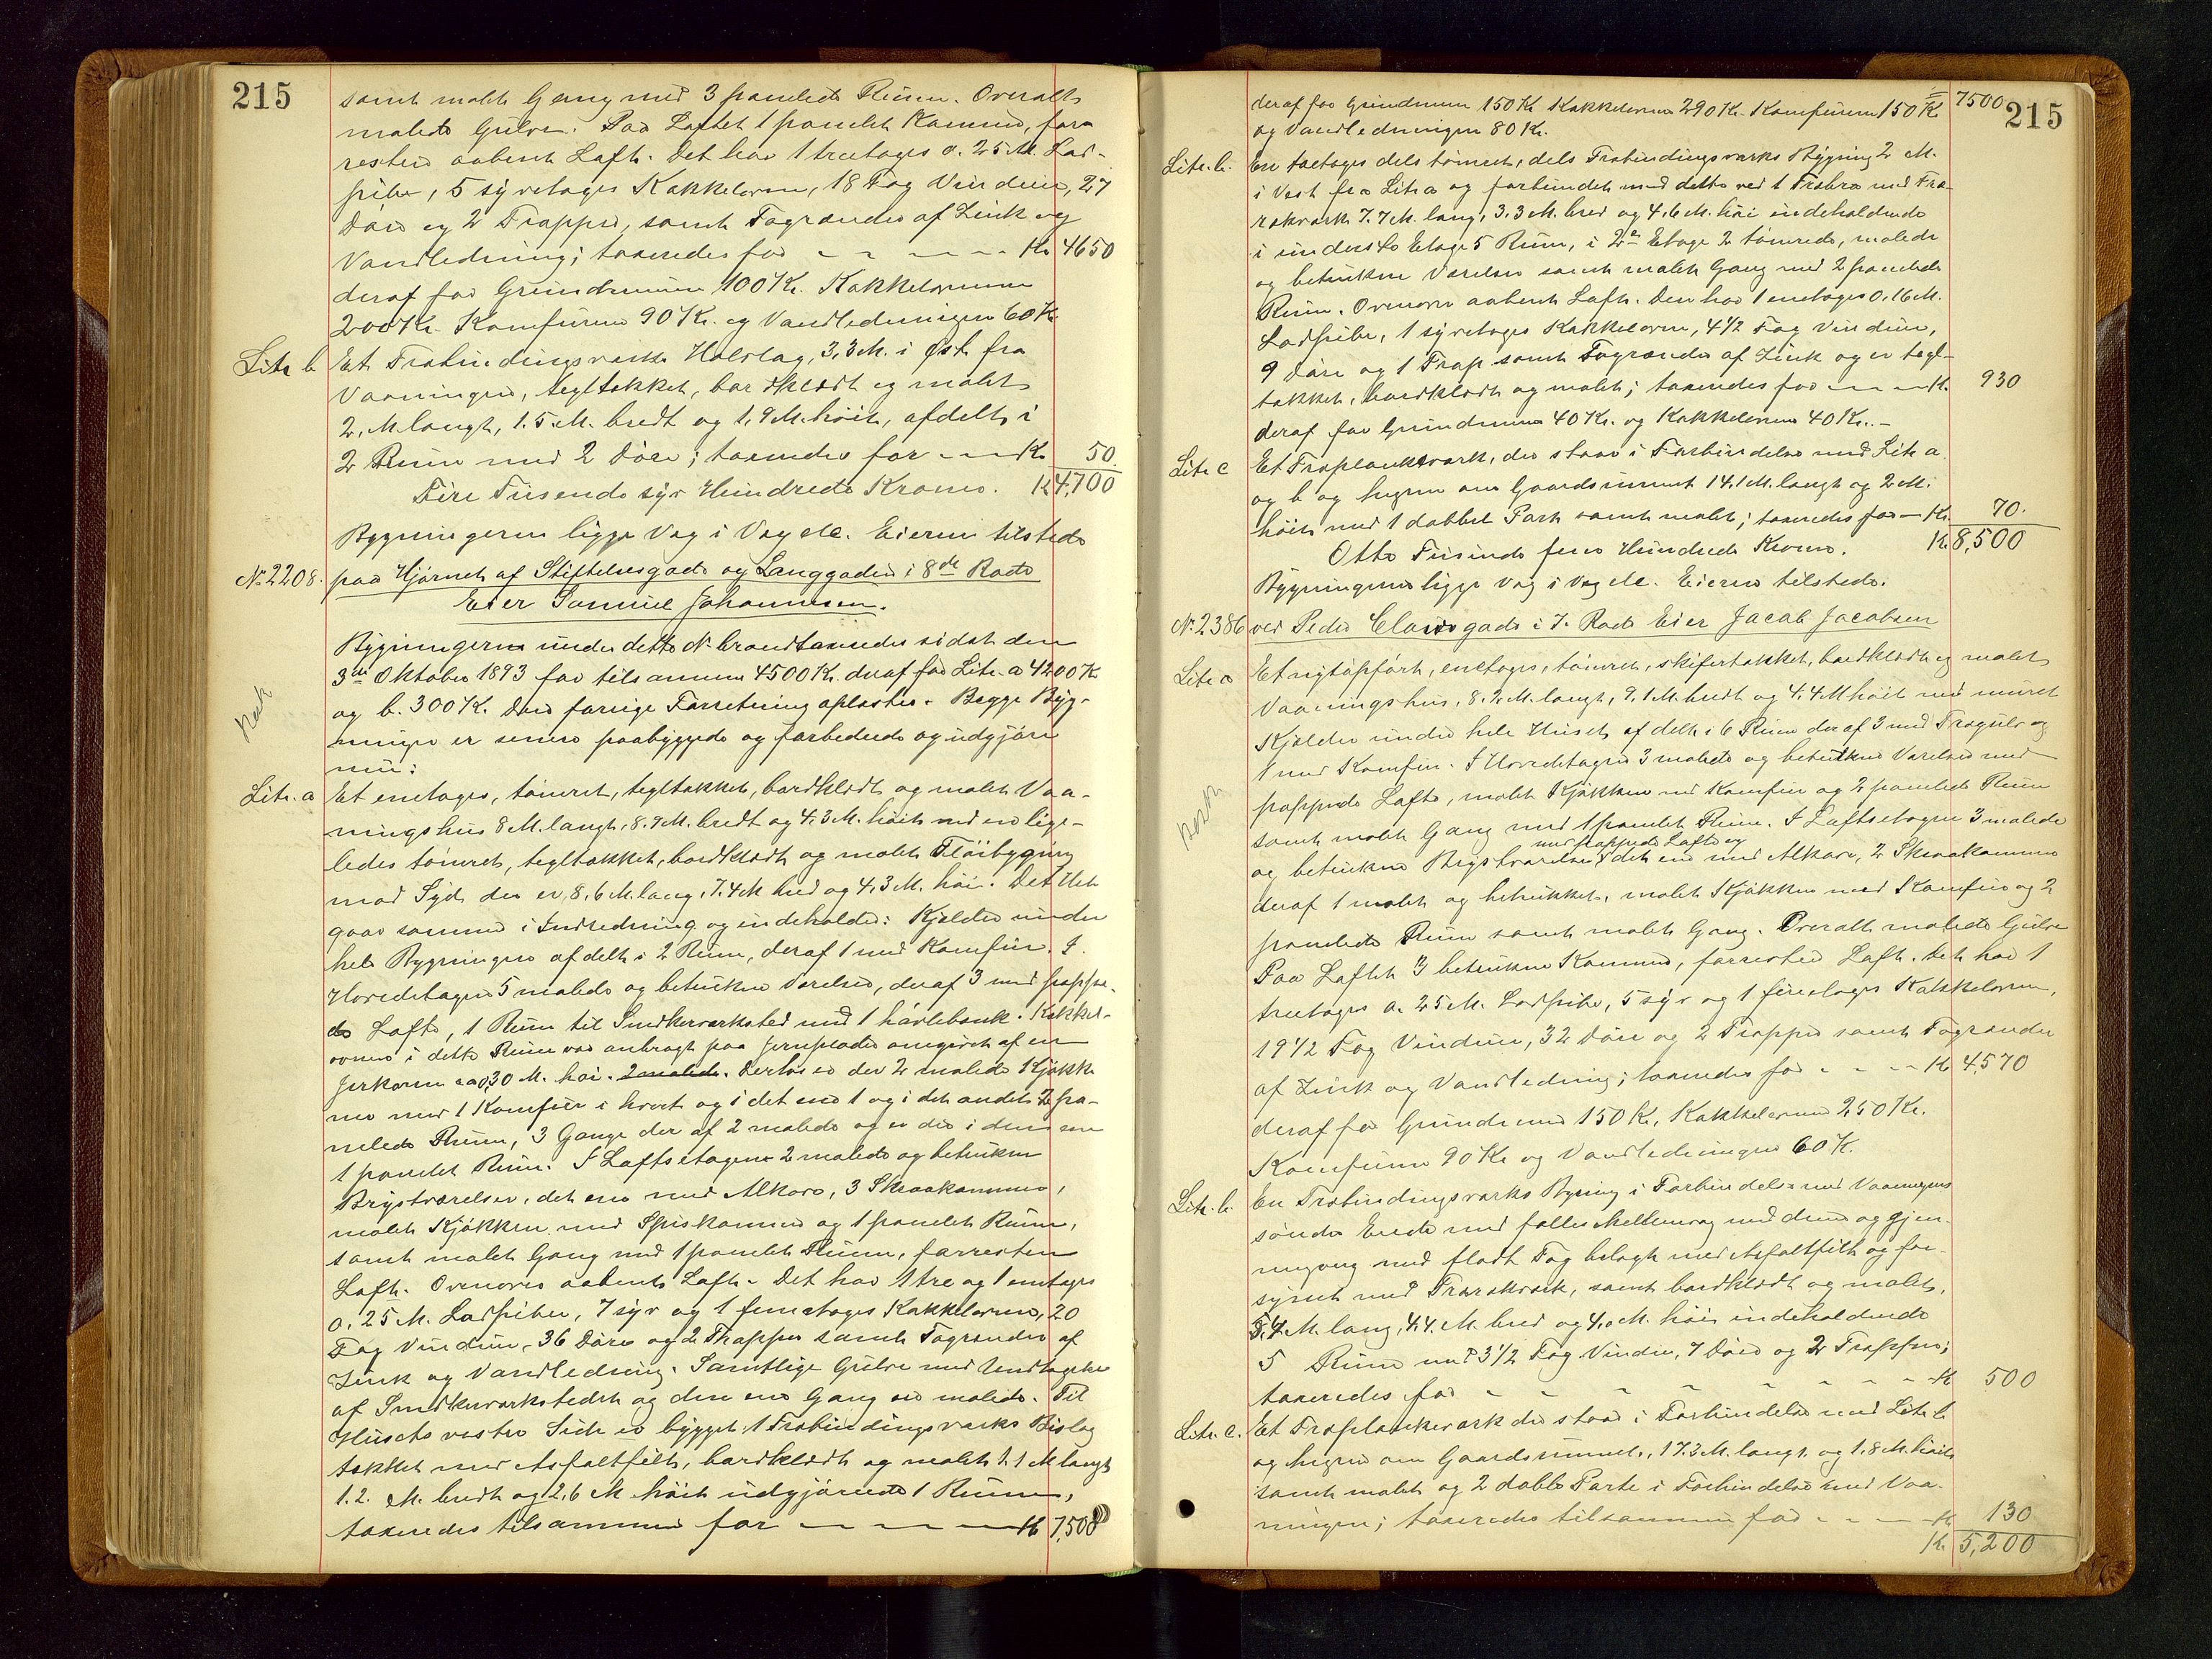 215
samt malet Gang med 3 panelede Rum. Overalt
malede Gulve. Paa Loftet 1 panelet Kammer, for-
resten aabent Loft. Det har 1 treetages 0.25 M. Lod-
pibe, 5 syvetages Kakkelovne, 18 Fag Vinduer, 27
Døre og 2 Trapper, samt Tagrender af Zink og
Vandledning; taxeredes for - - - - - Kr. 4650
deraf for Grundmuren 100 Kr. Kakkelovnene
200 Kr. Komfurene 90 Kr. og Vandledningen 60 Kr.
Litr b Et Træbindingsværks Halvtag, 3,3 M. i Øst fra
Vaaningen, tegltækket, bordklædt og malet
2, M. langt, 1.5 M. bredt og 1,9 M. høit, afdelt i
2 Rum med 2 Døre; taxeredes for - - - Kr 50.
Fire Tusende syv Hundrede Kroner. Kr 4,700
Bygningerne ligge Væg i Væg etc. Eieren tilstede
No 2208. paa Hjørnet af Stiftelsesgade og Langgaden i 8de Rode
Eier Samuel Johannesen.
Bygningerne under dette No brandtaxeredes sidst den
3die Oktober 1893 for tilsammen 4500 Kr. deraf for Litr. a 4200 Kr
og b. 300 Kr. Den forrige Forretning oplæstes. Begge Byg-
ninger er senere paabyggede og forbedrede og udgjøre
nu:
Litr. a Et enetages, tømret, tegltækket, bordklædt og malet Vaa-
ningshus 8 M. langt, 8.7 M. bredt og 4,3 M. høit med en lige-
ledes tømret, tegltækket, bordklædt og malet Fløibygning
mod Syd, der er 8,6 M. lang, 7.4 M bred og 4,3 M. høi. Det Hele
gaar sammen i Indredning og indeholder: Kjælder under
hele Bygningen afdelt i 2 Rum, deraf 1 med Komfur. I
Hovedetagen 5 malede og betrukne Værelser, deraf 3 med pappe-
de Lofte, 1 Rum til Snedkerværksted med 1 høvlebænk. Kakkel-
ovnen i dette Rum var anbragt paa Jernplade omgivet af en
Jerkarm ca 0,30 M. høi. 2 malede. Desuden er der 2 malede Kjøkke-
ner med 1 Komfur i hvert og i det ene 1 og i det andet 2 pa-
nelede Rum, 3 Gange der af 2 malede og er der i den ene
1 panelet Rum. I Loftsetagen 2 malede og betrukne
Brystværelser, det ene med Alkove, 3 Skraakammere,
malet Kjøkken med Spiskammer og 1 panelet Rum,
samt malet Gang med 1 panelet Rum, forresten
Loft. Ovenover aabent Loft. Det har 1 tre og 1 enetages
0.25 M. Lodpiber, 7 syv og 1 femetages Kakkelovne, 20
Fag Vinduer, 36 Døre og 2 Trapper samt Tagrender af
Zink og Vandledning. Samtlige Gulve med Undtagelse
af Snedkerværkstedet og den ene Gang ere malede. Til
Husets vestre Side er bygget 1 Træbindingsværks Bislag
tækket med Asfaltfilt, bordklædt og malet 1.1 M langt
1.2. M. bredt og 2,6 M høit udgjørende 1 Rum,
taxeredes tilsammen for - - - - Kr 7,500
215
deraf for Grundmuren 150 Kr Kakkelovnene 290 Kr. Komfurene 150 Kr 7500
og Vandledningen 80 Kr.
Litr. b. En toetages dels tømret, dels Træbindingsværks Bygning 2 M.
i Vest fra Litr a og forbundet med dette ved 1 Træbro med Træ-
rækværk 7.7 M. lang, 3.3 M. bred og 4,6 M. høi indeholdende
i underste Etage 5 Rum, i 2den Etage 2 tømrede, malede
og betrukne Værelser samt malet Gang med 2 panelede
Rum. Ovenover aabent Loft. Den har 1 enetages 0.16 M.
Lodpibe, 1 syvetages Kakkelovn, 4 1/2 Fag Vinduer,
9 Døre og 1 Trap samt Tagrender af Zink og er tegl-
tækket, bordklædt og malet; taxeredes for - - - Kr. 930
deraf for Grundmuren 40 Kr. og Kakkelovnen 40 Kr. -
Litr c Et Træplankeværk, der staar i Forbindelse med Litr a
og b og hegner om Gaardsrummet 14,1 M. langt og 2 M.
høit med 1 dobbel Port samt malet; taxeredes for - Kr. 70.
Otte Tusinde fem Hundrede Kroner. Kr. 8,500
Bygningerne ligge Væg i Væg etc. Eieren tilstede.
No. 2386 ved Peder Clausgade i 7. Rode Eier Jacob Jacobsen
Litr. a Et nyt opført, enetages, tømret, skifertækket, bordklædt og malet
Vaaningshus, 8.2 M. langt, 9.1 M. bredt og 4.4 M høit med muret
Kjælder under hele Huset af delt i 6 Rum deraf 3 med Trægulv og
1 med Komfur. I Hovedetagen 3 malede og betrukne Værelser med
pappede Lofte, malet Kjøkken med Komfur og 2 panelede Rum
samt malet Gang med 1 panelet Rum. I Loftsetagen 3 malede
med pappede Lofte og
og betrukne Brystværelser det ene med Alkove, 2 Skraakammere
deraf 1 malet og betrukket, malet Kjøkken med Komfur og 2
panelede Rum samt malet Gang. Overalt malede Gulve
Paa Loftet 3 betrukne Kammere, forresten Loft. Det har 1
treetages 0.25 M. Lodpibe, 5 syv og 1 fireetages Kakkelovne,
19 1/2 Fag Vinduer, 32 Døre og 2 Trapper samt Tagrender
af Zink og Vandledning; taxeredes for - - - - Kr 4,570
deraf for Grundmuren 150 Kr, Kakkelovnene 250 Kr.
Komfurene 90 Kr og Vandledningen 60 Kr.
Litr. b. En Træbindingsværks Bygning i Forbindelse med Vaaningens
søndre Ende med fælles Skillevæg med denne og gjen-
nemgang med fladt Tag belagt med Asfaltfilt og for-
synet med Trærækværk, samt bordklædt og malet,
5,4 M. lang, 4,4. M. bred og 4,0 M. høi indeholdende
5 Rum med 3 1/2 Fag Vinduer, 7 Døre og 2 Trapper;
taxeredes for - - - - - - - - Kr 500
Litr. c. Et Træplankeværk der staar i Forbindelse med Litr. b
og hegner om Gaardsrummet, 17.2 M. langt og 1.8 M. høit
samt malet og 2 doble Porte i Forbindelse med Vaa-
ningen; taxeredes tilsammen for - - - - Kr 130
Kr. 5,200